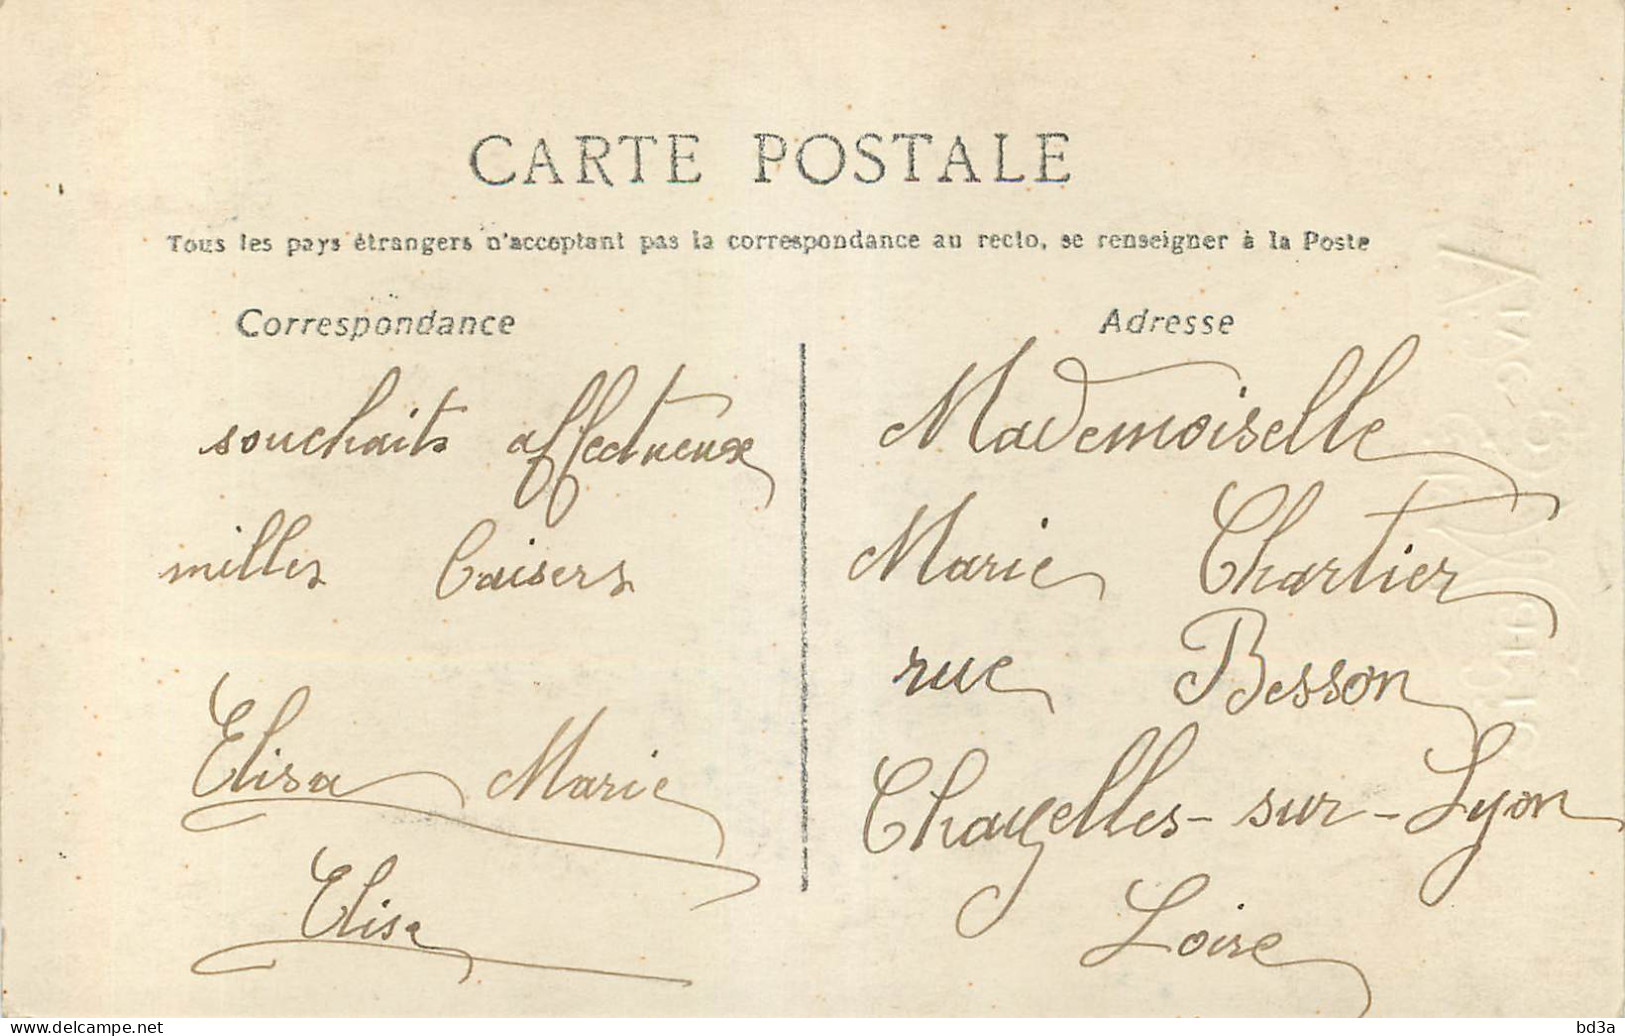 CARTE POSTALE
Tous les pays étrangers n'acceptent pas la correspondance au recto, se renseigner à la Poste
Correspondance
souchaits affectueux
milles baisers
Elisa Marie
Elise
Adresse
Mademoiselle
Marie Chartier
rue Besson
Chazelles-sur-Lyon
Loire
delcampe.net
bd3a